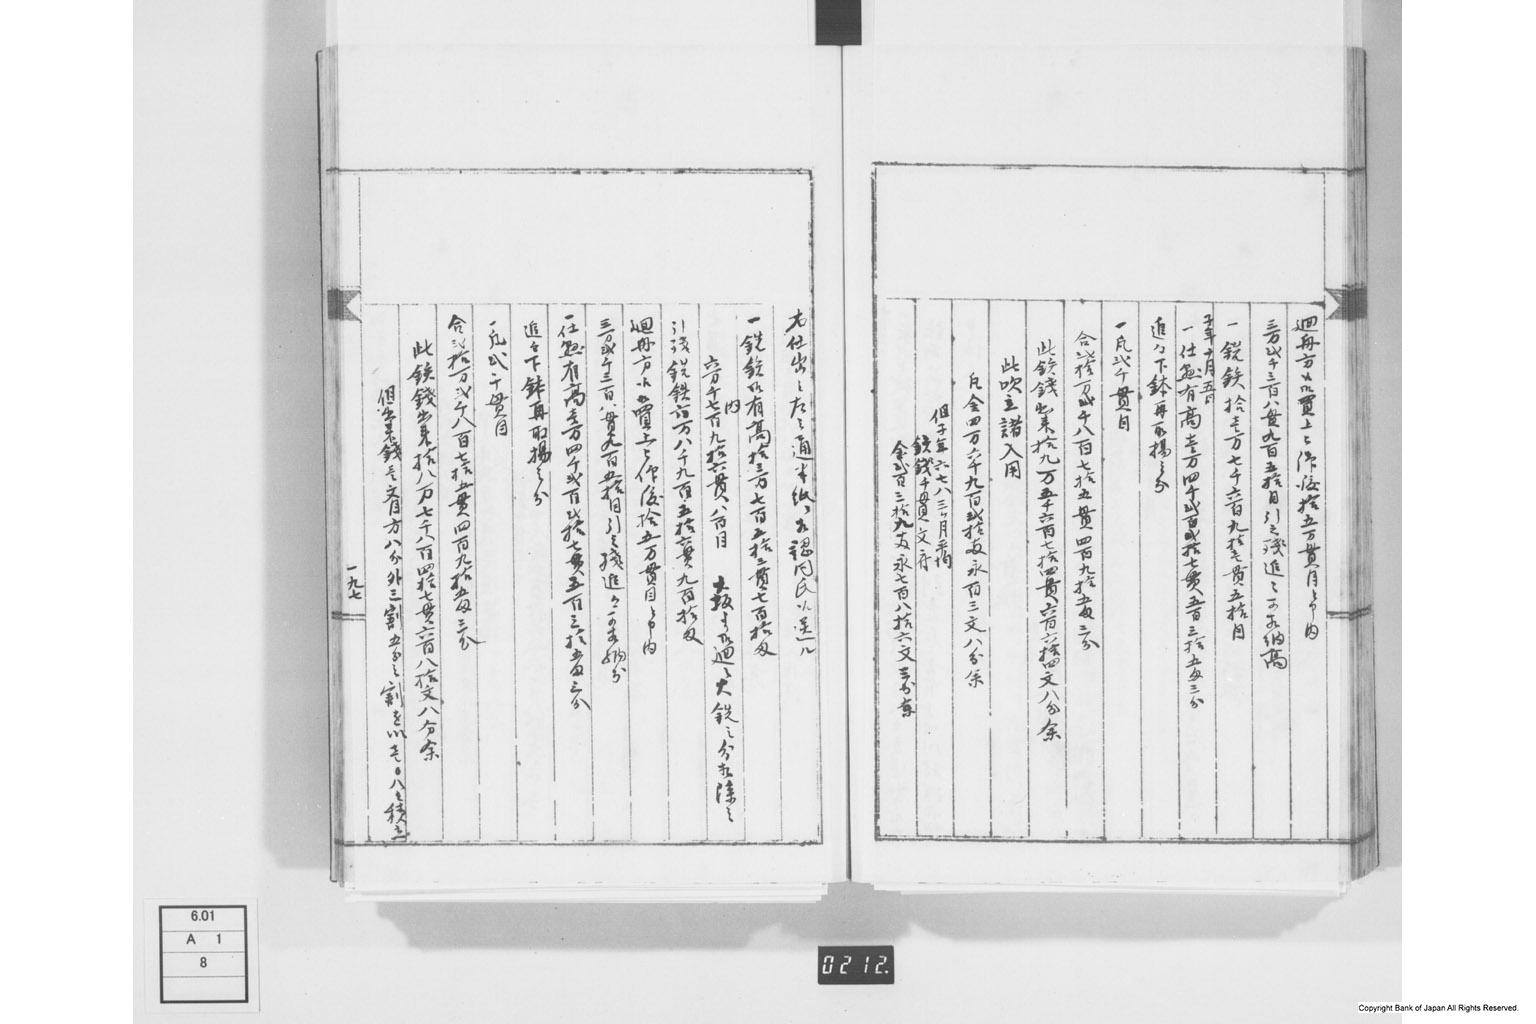 廻舟方ゟ買上ヶ作後拾五万貫目之内
三万弐千三百八貫九百五拾目引之残追々可相納高
一銑鉄拾壱万七千六百九拾壱貫五拾目
子年十月五日
一仕懸有高壱万四千弐百弐拾七貫五百三拾五匁三分
追々下鉢再取揚之分
一凡弐千貫目
合弐拾万弐千八百七拾五貫四百九拾五匁三分
此鉄銭出来拾九万五千六百七拾四貫六百六拾四文八分余
此吹立諸入用
凡金四万六千九百弐拾両永百三文八分余
但子年六七八三ヶ月平均
鉄銭千貫文ニ付
金弐百三拾九両永七百八拾六文三分余
右仕出之左之通半紙ニ相認同氏ゟ送ル
一銑鉄有高拾三万七百五拾三貫七百拾匁
内
六万千七百九拾六貫八百目
大坂ゟ廻之大銑之分相除之
引残銑鉄六万八千九百五拾六貫九百拾匁
廻舟方ゟ買上ヶ作後拾五万貫目之内
三万弐千三百八貫九百五拾目引之残追々可相納分
一仕懸有高壱万四千弐百弐拾七貫五百三拾五匁三分
追々下鉢再取揚之分
一凡弐千貫目
合弐拾万弐千八百七拾五貫四百九拾五匁三分
此鉄銭出来拾八万七千八百四拾七貫六百八拾文八分余
但出来銭壱文目方八分外三割五分之割を以壱〇八之積立
一九七
6.01
A 1
8
0212.
Copyright Bank of Japan All Rights Reserved.